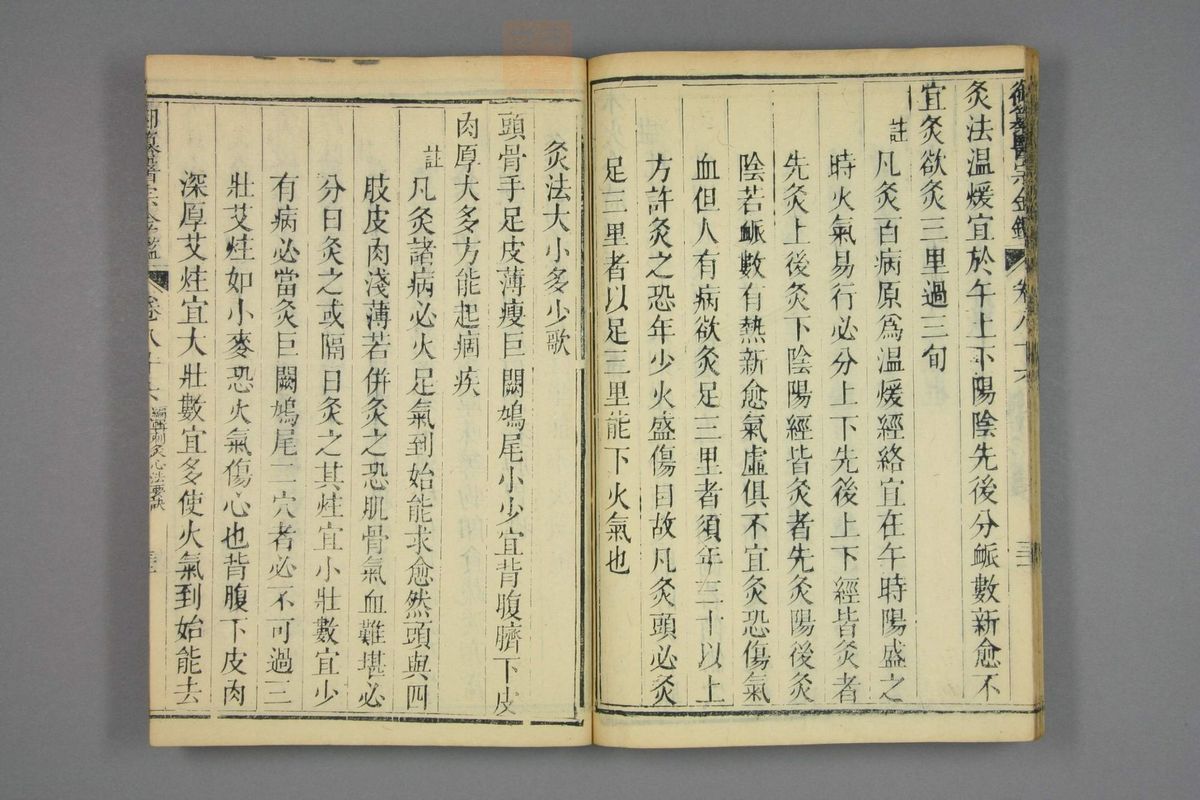 御纂醫宗金鑑 卷八十六 三
灸法溫煖宜於午上下陽陰先後分衇數新愈不
宜灸欲灸三里過三旬
註凡灸百病原爲溫煖經絡宜在午時陽盛之
時火氣易行必分上下先後上下經皆灸者
先灸上後灸下陰陽經皆灸者先灸陽後灸
陰若衇數有熱新愈氣虛俱不宜灸恐傷氣
血但人有病欲灸足三里者須年三十以上
方許灸之恐年少火盛傷目故凡灸頭必灸
足三里者以足三里能下火氣也
灸法大小多少歌
頭骨手足皮薄瘦巨闕鳩尾小少宜背腹臍下皮
肉厚大多方能起痼疾
註凡灸諸病必火足氣到始能求愈然頭與四
肢皮肉淺薄若併灸之恐肌骨氣血難堪必
分日灸之或隔日灸之其炷宜小壯數宜少
有病必當灸巨闕鳩尾二穴者必不可過三
壯艾炷如小麥恐火氣傷心也背腹下皮肉
深厚艾炷宜大壯數宜多使火氣到始能去
卷八十六 編輯刺灸心法要訣